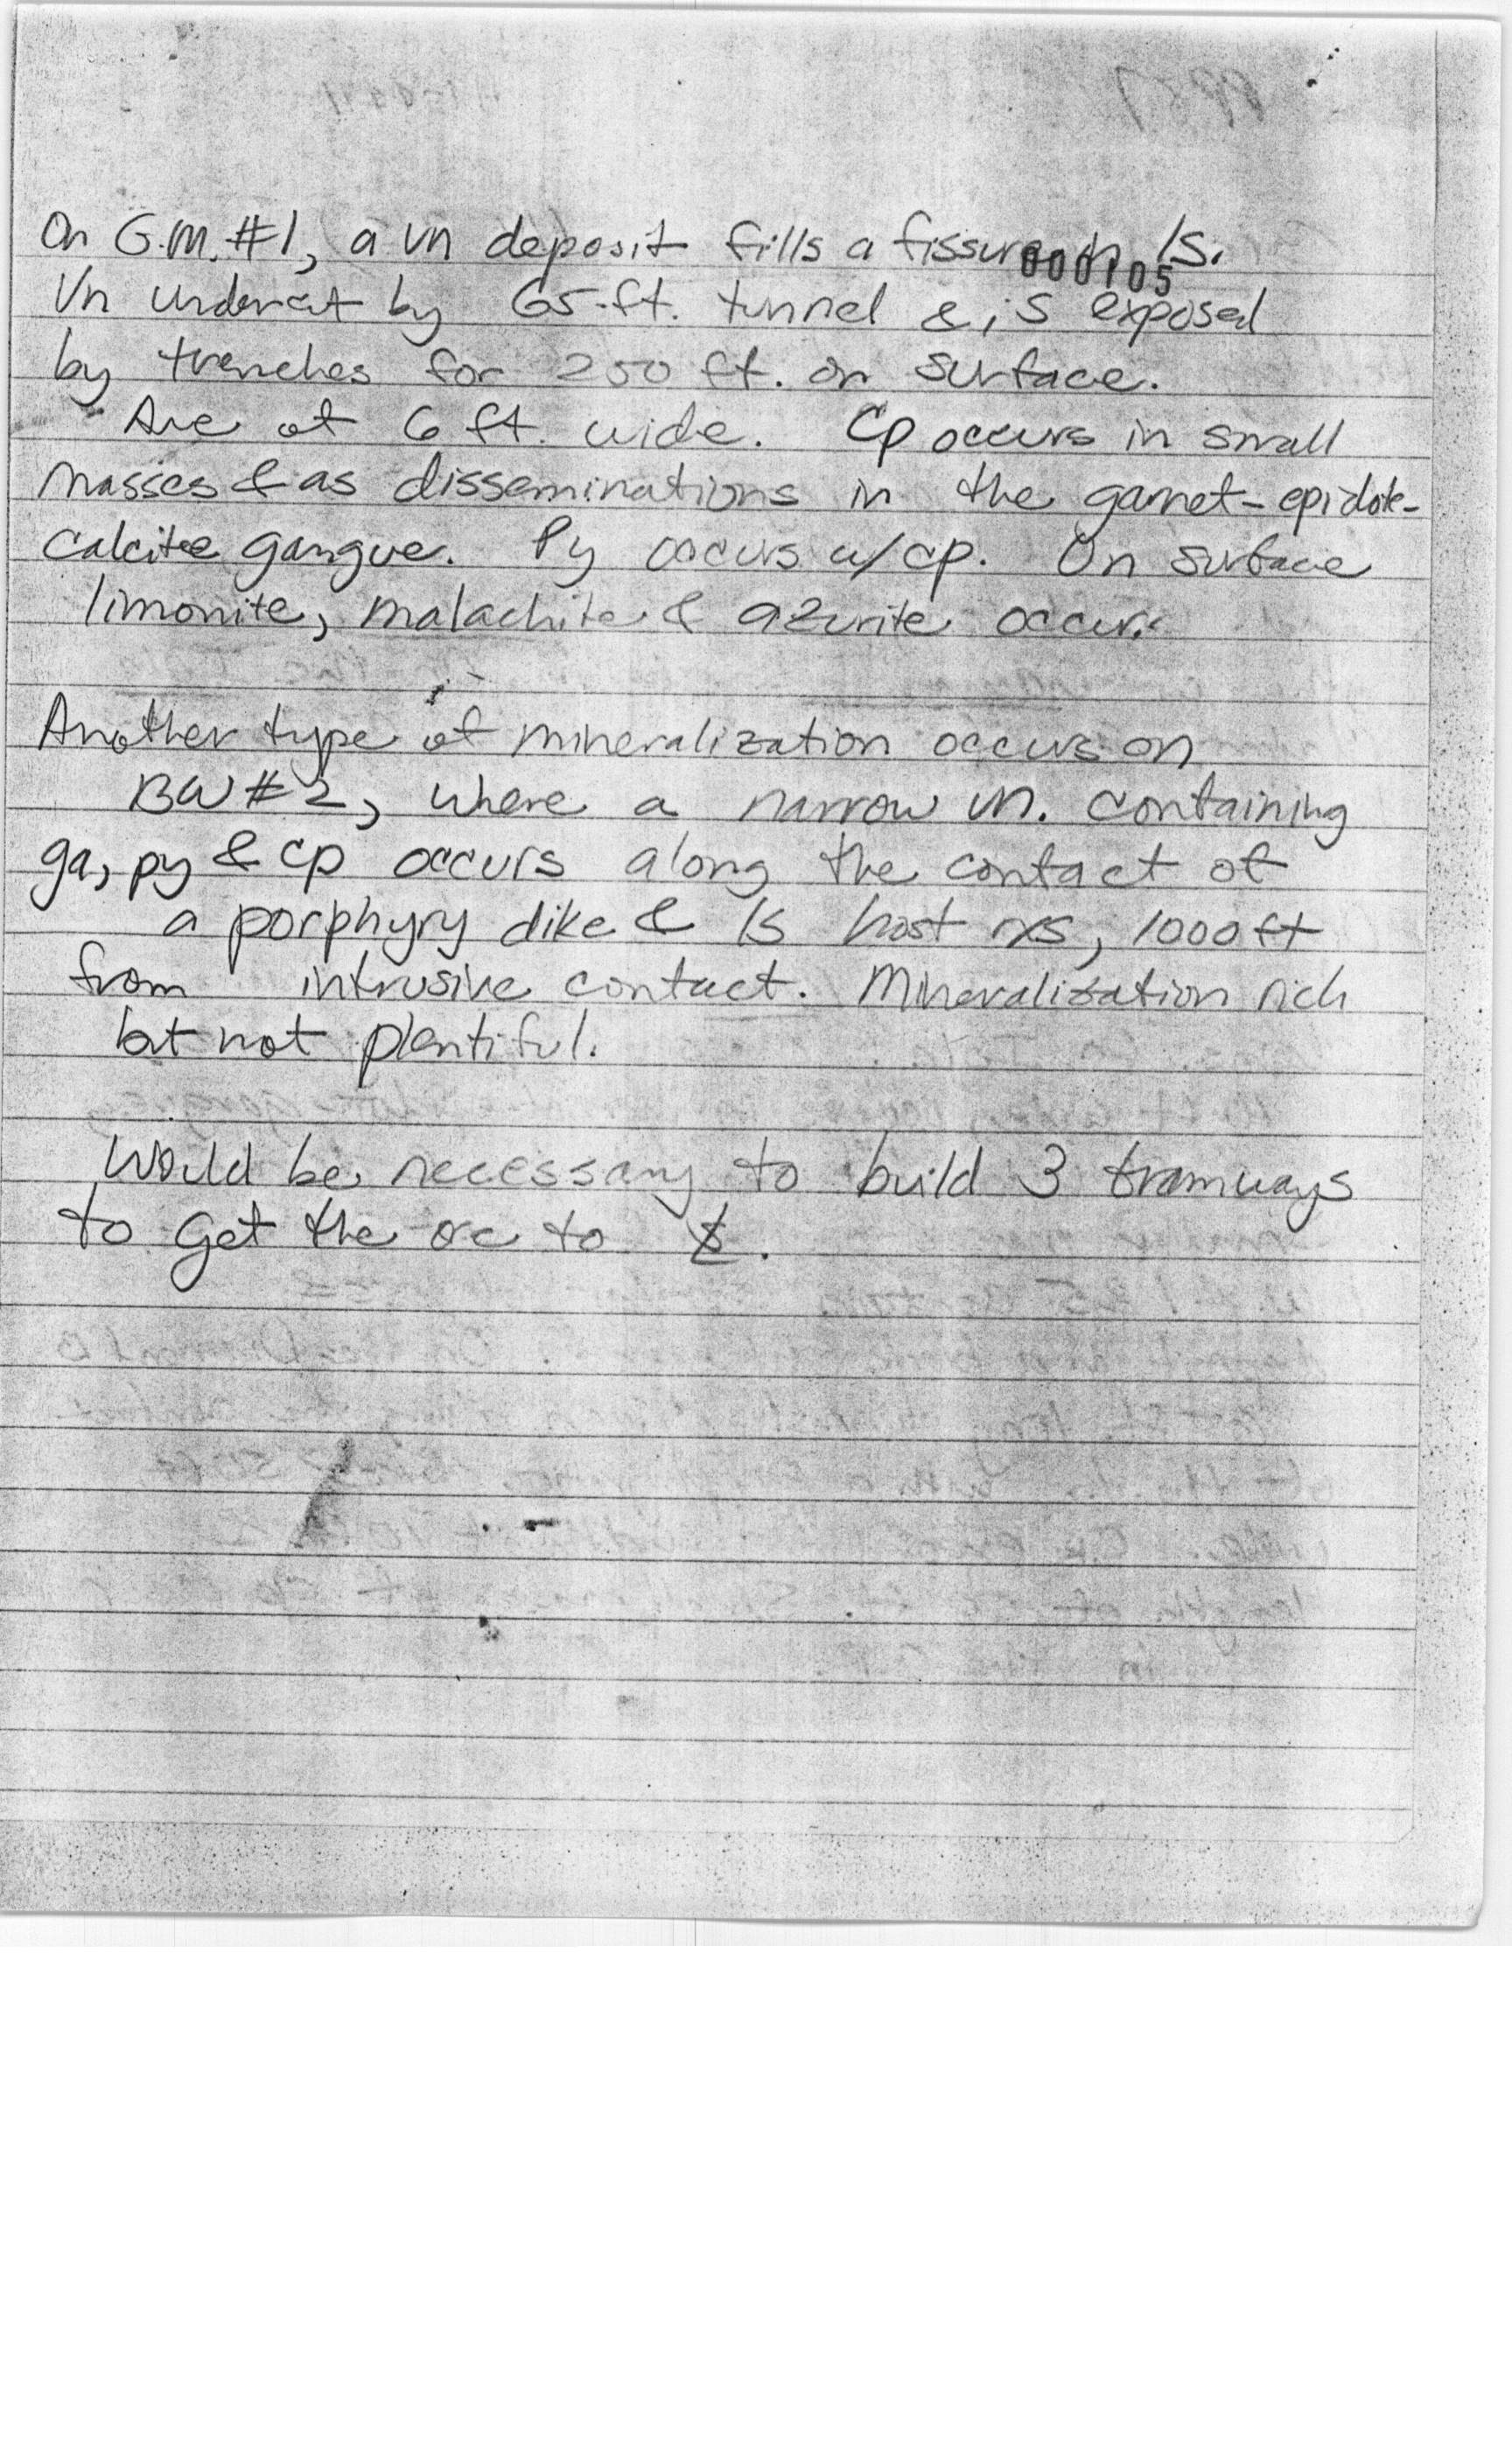 On G.M. #1, a vn deposit fills a fissure in ls.
000105
Vn undercut by 65-ft. tunnel & is exposed
by trenches for 250 ft. on surface.
Ave of 6 ft. wide. Cp occurs in small
masses & as disseminations in the garnet-epidote-
calcite gangue. Py occurs w/cp. On surface
limonite, malachite & azurite occur.
Another type of mineralization occurs on
BW #2, where a narrow vn. containing
ga, py & cp occurs along the contact of
a porphyry dike & ls host rxs, 1000 ft
from intrusive contact. Mineralization rich
but not plentiful.
Would be necessary to build 3 tramways
to get the ore to